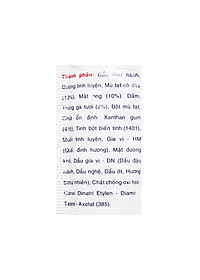 Thành phần: Dầu đậu nành,
Đường tinh luyện, Mù tạt cổ điển
(13%), Mật ong (10%), Dấm,
Trứng gà tươi (2%), Bột mù tạt,
Chất ổn định: Xanthan gum
(415), Tinh bột biến tính (1401),
Muối tinh luyện, Gia vị - HM
(Quế, đinh hương), Mật đường
khô, Dầu gia vị - DN (Dầu đậu
nành, Dầu nghệ, Dầu ớt, Hương
tự nhiên), Chất chống oxi hóa
Canxi Dinatri Etylen - Diamin
Tetra - Axetat (385).